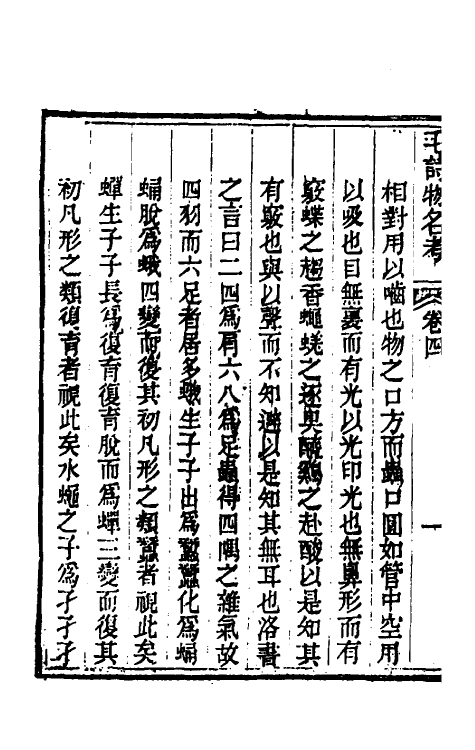 毛詩物名考　卷四　一
相對用以嚙也物之口方而蟲口圓如管中空用
以吸也目無裏而有光以光印光也無鼻形而有
竅蝶之趨香蠅蟯之逐臭醯鷄之赴酸以是知其
有竅也與以聲而不知避以是知其無耳也洛書
之言曰二四爲肩六八爲足蟲得四隅之雜氣故
四羽而六足者居多蛾生子子出爲蠶蠶化爲蛹
蛹脫爲蛾四變而復其初凡形之類蠶者視此矣
蟬生子子長爲復育復育脫而爲蟬三變而復其
初凡形之類復育者視此矣水蠅之子爲孑孑孑